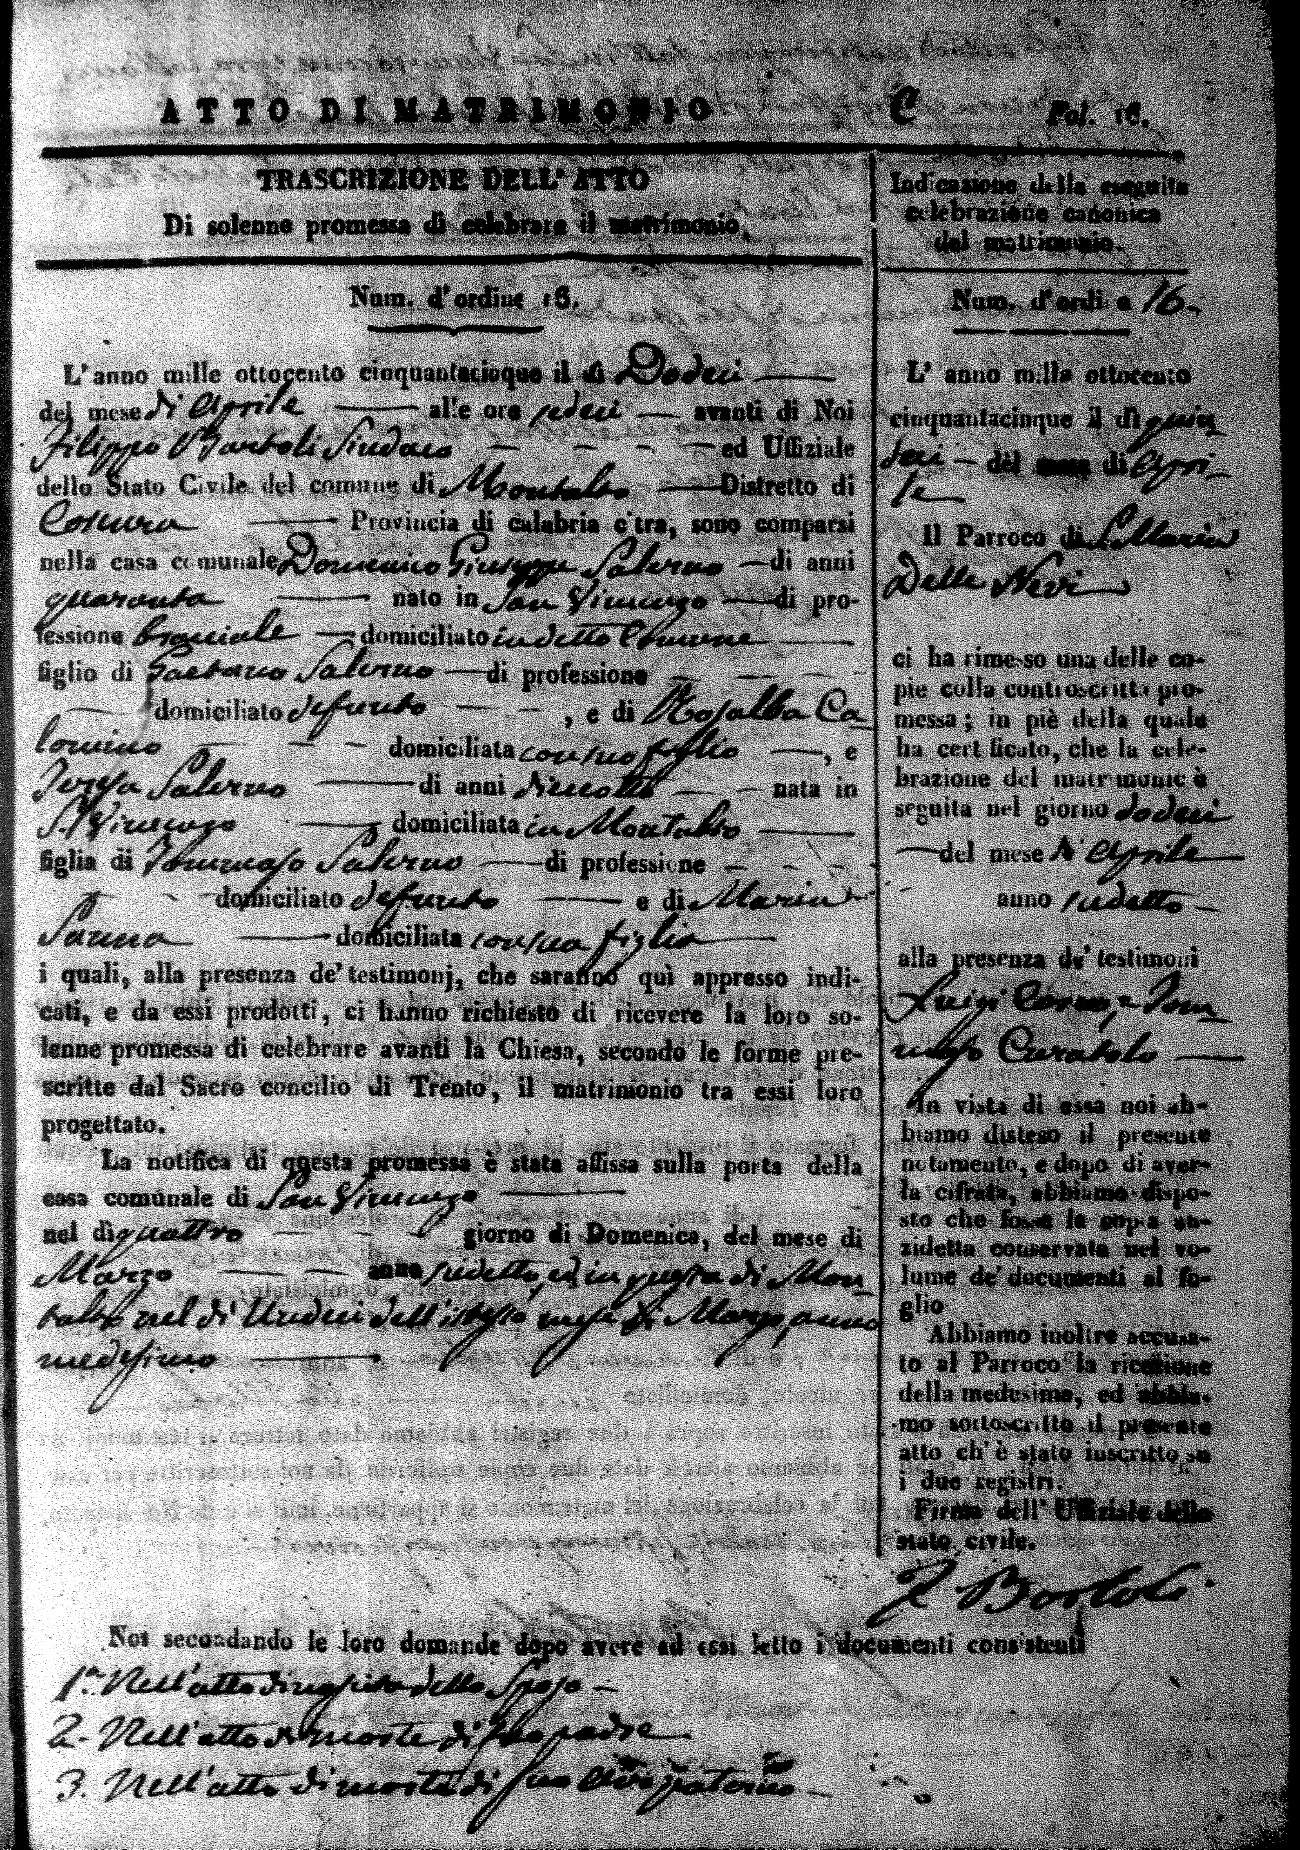 ATTO DI MATRIMONIO C Fol. 16.
TRASCRIZIONE DELL' ATTO
Di solenne promessa di celebrare il matrimonio.
Num. d'ordine 16.
L'anno mille ottocento cinquantacinque il dì Dodeci
del mese di Aprile alle ore sedeci avanti di Noi
Filippo Bartoli Sindaco ed Uffiziale
dello Stato Civile del comune di Montalto Distretto di
Cosenza Provincia di calabria citra, sono comparsi
nella casa comunale Domenico Giuseppe Salerno di anni
quaranta nato in San Vincenzo di pro-
fessione bracciale domiciliato in detto Comune
figlio di Gaetano Salerno di professione
domiciliato defunto , e di Rosalba Ca
lomino domiciliata con suo figlio , e
Teresa Salerno di anni diecotto nata in
S. Vincenzo domiciliata in Montalto
figlia di Tommaso Salerno di professione
domiciliato defunto e di Maria
Sanna domiciliata con sua figlia
i quali, alla presenza de' testimonj, che saranno quì appresso indi-
cati, e da essi prodotti, ci hanno richiesto di ricevere la loro so-
lenne promessa di celebrare avanti la Chiesa, secondo le forme pre-
scritte dal Sacro concilio di Trento, il matrimonio tra essi loro
progettato.
La notifica di questa promessa è stata affissa sulla porta della
casa comunale di San Vincenzo
nel dì quattro giorno di Domenica, del mese di
Marzo anno sudetto, ed in questa di Mon
talto nel dì Undeci dell'istesso mese di Marzo, anno
medesimo
Indicazione della eseguita
celebrazione canonica
del matrimonio.
Num. d'ordine 16.
L' anno mille ottocento
cinquantacinque il dì quin
deci del mese di Apri-
le
Il Parroco di S. Maria
Delle Nevi
ci ha rimesso una delle co-
pie colla controscritta pro-
messa; in piè della quale
ha certificato, che la cele-
brazione del matrimonio è
seguita nel giorno dodeci
del mese d'Aprile
anno sudetto
alla presenza de' testimoni
Luigi e Tom
maso Curatolo
In vista di essa noi ab-
biamo disteso il presente
notamento, e dopo di aver-
la cifrata, abbiamo dispo-
sto che fosse la copia an-
zidetta conservata nel vo-
lume de' documenti al fo-
glio
Abbiamo inoltre accusa-
to al Parroco la ricezione
della medesima, ed abbia-
mo sottoscritto il presente
atto ch' è stato inscritto su
i due registri.
Firma dell' Uffiziale dello
stato civile.
F Bartoli
Noi secondando le loro domande dopo avere ad essi letto i documenti consistenti
1.° Nell'atto di nascita dello Sposo
2. Nell'atto di morte di suo padre
3. Nell'atto di morte di suo avo paterno